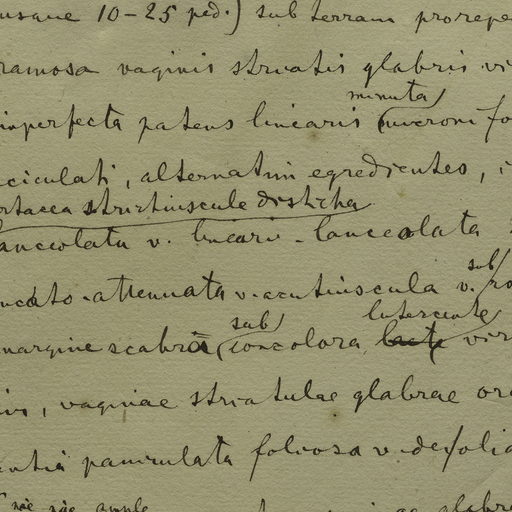 usque 10-25 ped.) sub terram prorepe
ramosa vaginis striatis glabris vi
minuta
imperfecta patens linearis (mucroni fo
ciculati, alternatim egredientes, i
rtacea strictiuscule disticha
lanceolata v. lineari-lanceolata
sub
ncato-attenuata v. acutiuscula v. ro
sub lutescente
margine scabra concolora, laete vir
vis, vaginae striatulae glabrae or
entia paniculata foliosa v. defolia
nae nae ample
glabr